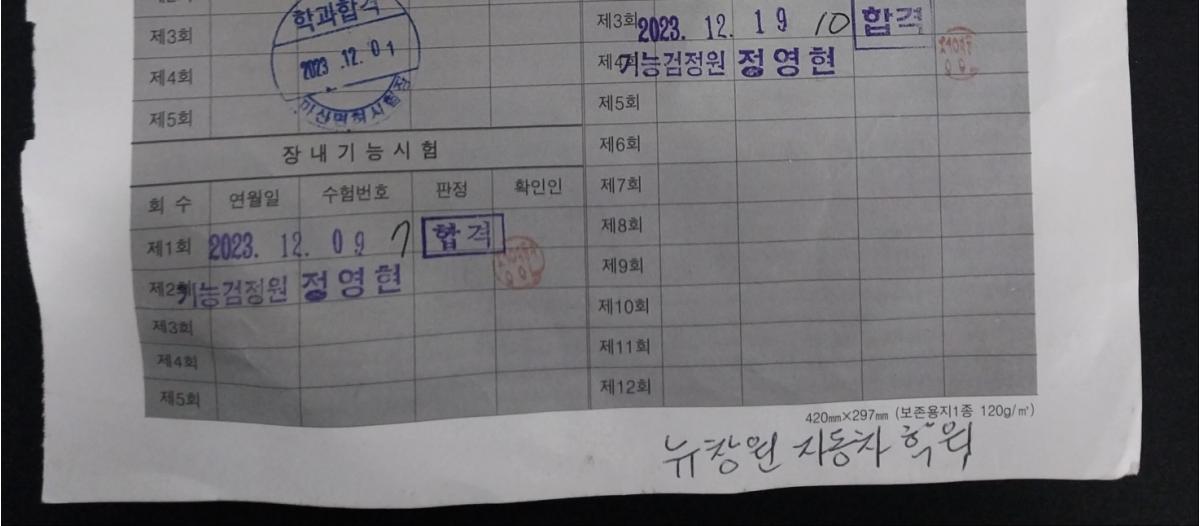 제3회
제4회
제5회
학과합격
2023 .12. 01
마산면허시험장
장내기능시험
회수 연월일 수험번호 판정 확인인
제1회 2023. 12. 09 7 합격
제2회 기능검정원 정영현
제3회
제4회
제5회
제3회 2023. 12. 19 10 합격
제4회 기능검정원 정영현
제5회
제6회
제7회
제8회
제9회
제10회
제11회
제12회
420㎜×297㎜ (보존용지1종 120g/㎡)
뉴창원 자동차 학원